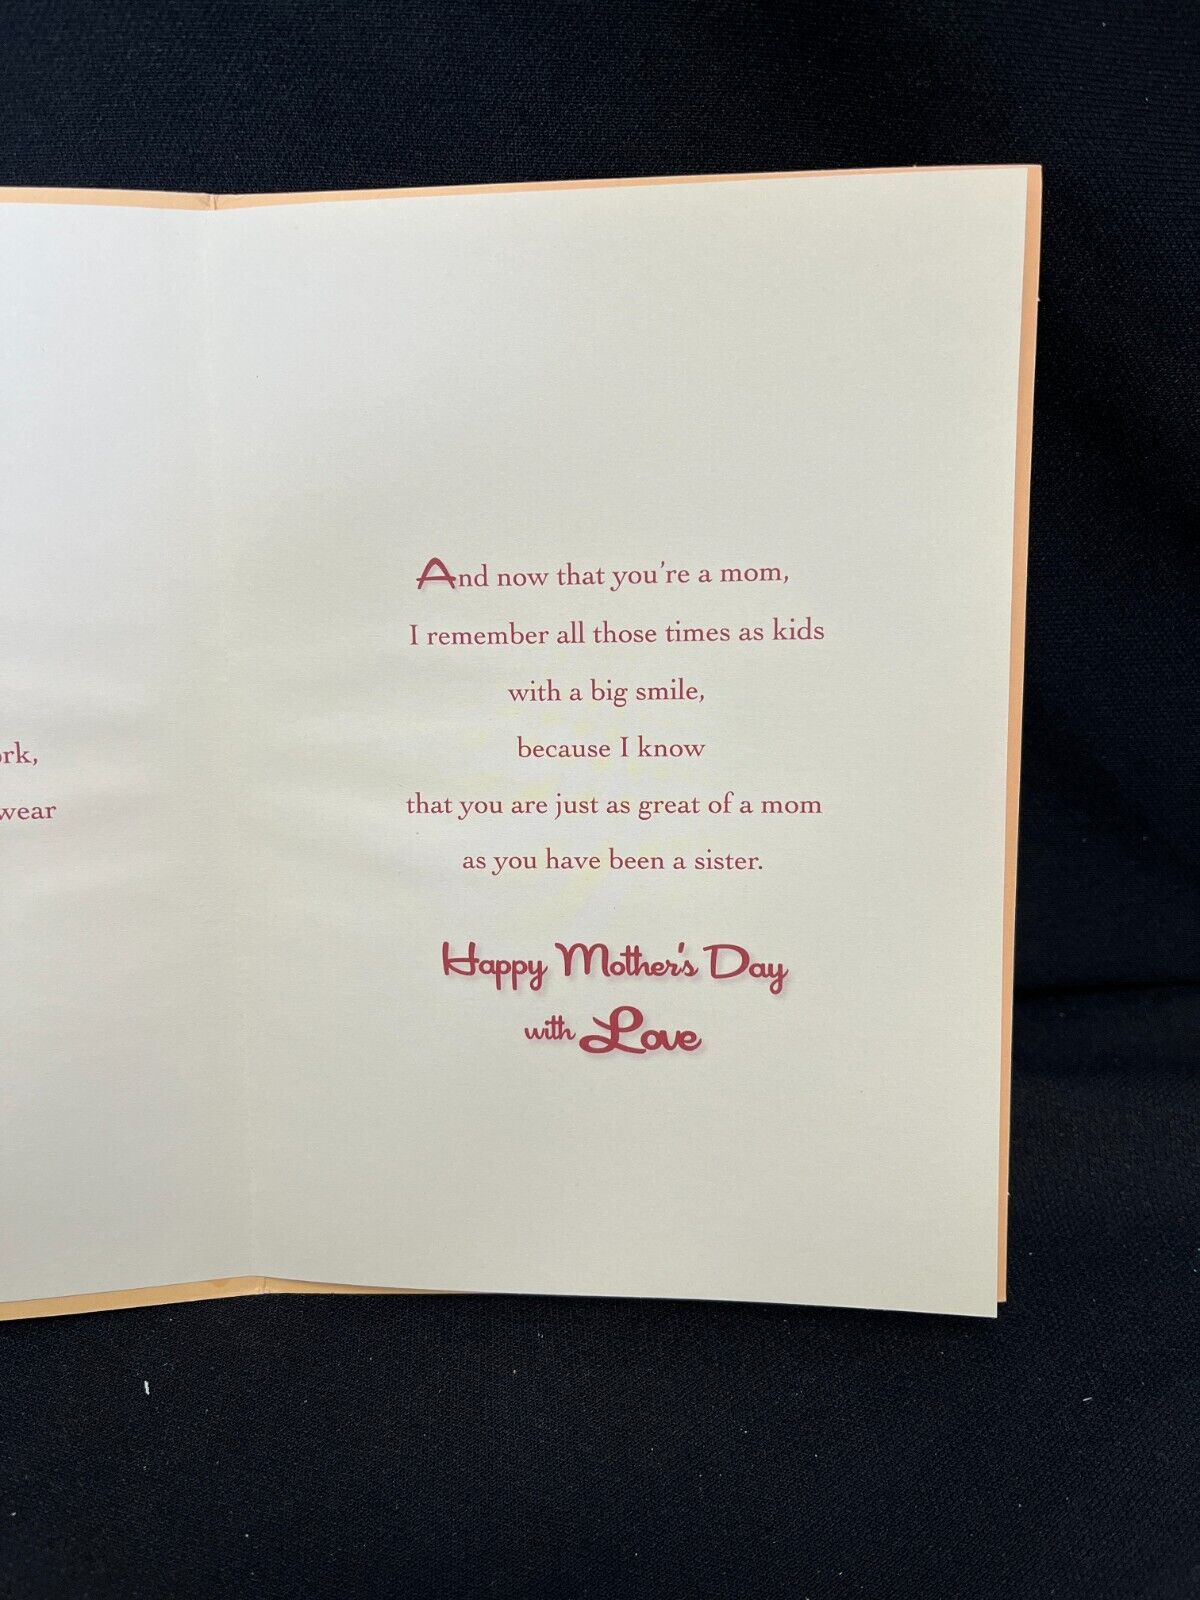 wear
And now that you're a mom,
I remember all those times as kids
with a big smile,
because I know
that you are just as great of a mom
as you have been a sister.
Happy Mother's Day
with Love